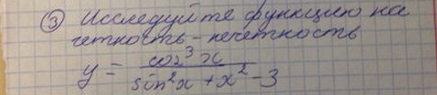 ③ Исследуйте функцию на
четность - нечетность
y = cos³x / sin²x + x² - 3